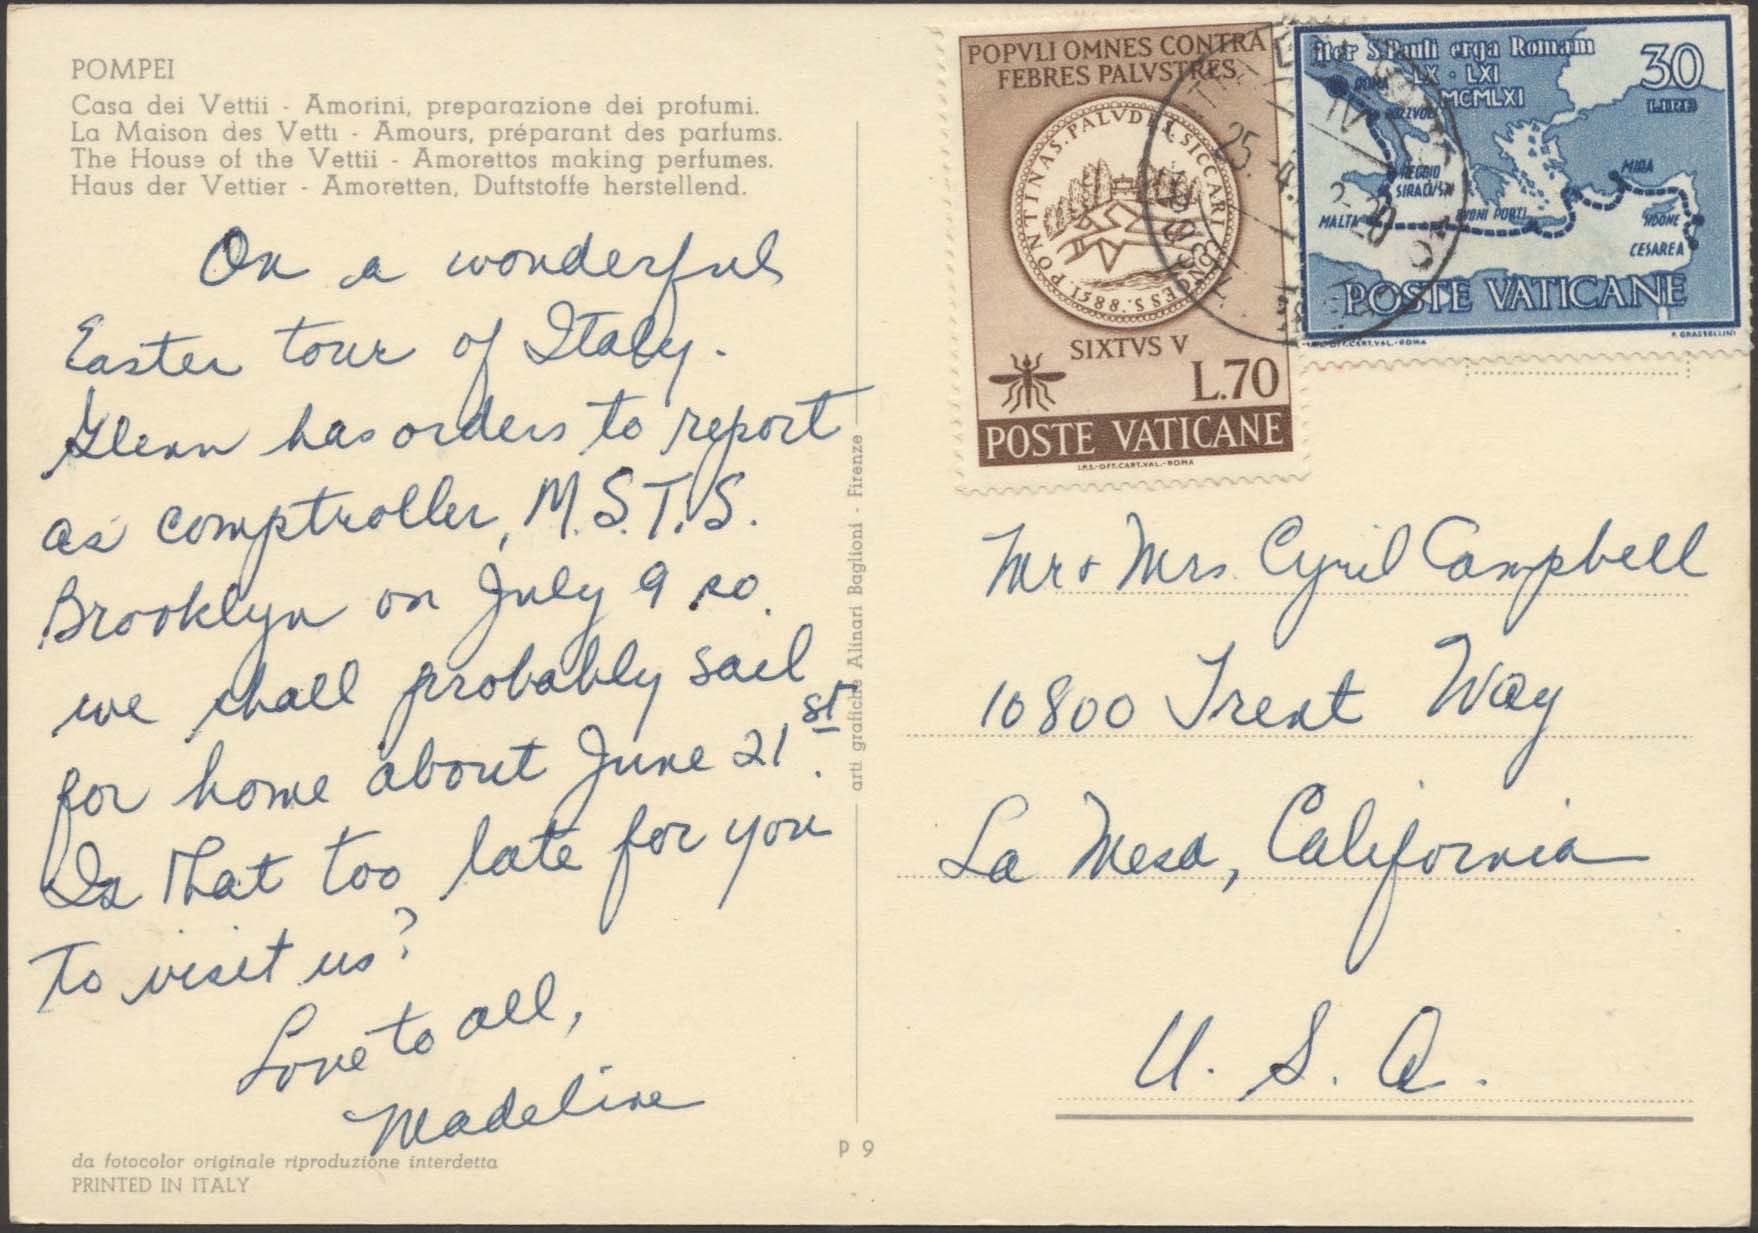 POMPEI
Casa dei Vettii - Amorini, preparazione dei profumi.
La Maison des Vetti - Amours, préparant des parfums.
The House of the Vettii - Amorettos making perfumes.
Haus der Vettier - Amoretten, Duftstoffe herstellend.
On a wonderful
Easter tour of Italy.
Glenn has orders to report
as comptroller, M.S.T.S.
Brooklyn on July 9 so
we shall probably sail
for home about June 21st.
Is that too late for you
to visit us?
Love to all,
Madeline
da fotocolor originale riproduzione interdetta
PRINTED IN ITALY
arti grafiche Alinari Baglioni - Firenze
P 9
POPVLI OMNES CONTRA
FEBRES PALVSTRES
PONTINAS.PALVDES.SICCARI CONCESS.1588.
SIXTVS V
L.70
POSTE VATICANE
I.P.S.-OFF.CART.VAL.-ROMA
Iter S.Pauli erga Romam
LX · LXI
MCMLXI
30
LIRE
ROMA
POZZVOLI
REGGIO
SIRACUSA
MALTA
BUONI PORTI
MIRA
SIDONE
CESAREA
POSTE VATICANE
I.P.S.-OFF.CART.VAL.-ROMA
P. GRASSELLINI
25. 4.
Mr & Mrs. Cyril Campbell
10800 Trent Way
La Mesa, California
U. S. A.